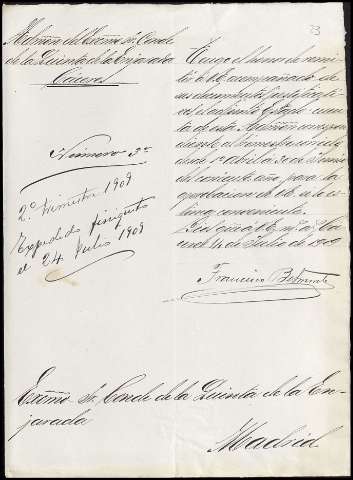 23
Admón del Excmo Sr. Conde
de la Quinta de la Enjarada
Cáceres
Número 3º
2º trimestre 1909
Expedido finiquito
el 24 Julio 1909
Tengo el honor de remi-
tir á V.E. acompañado de
sus documentos justificati-
vos el adjunto Estado-cuen-
ta de esta Admón correspon-
diente al trimestre
desde 1º Abril á 30 de Junio
del corriente año para la
aprobacion de V.E. si lo es-
tima conveniente.
Dios gūe á V.E. m. a. Cá-
ceres 14 de Julio de 1909
Francisco
Excmo Sr. Conde de la Quinta de la En-
jarada
Madrid